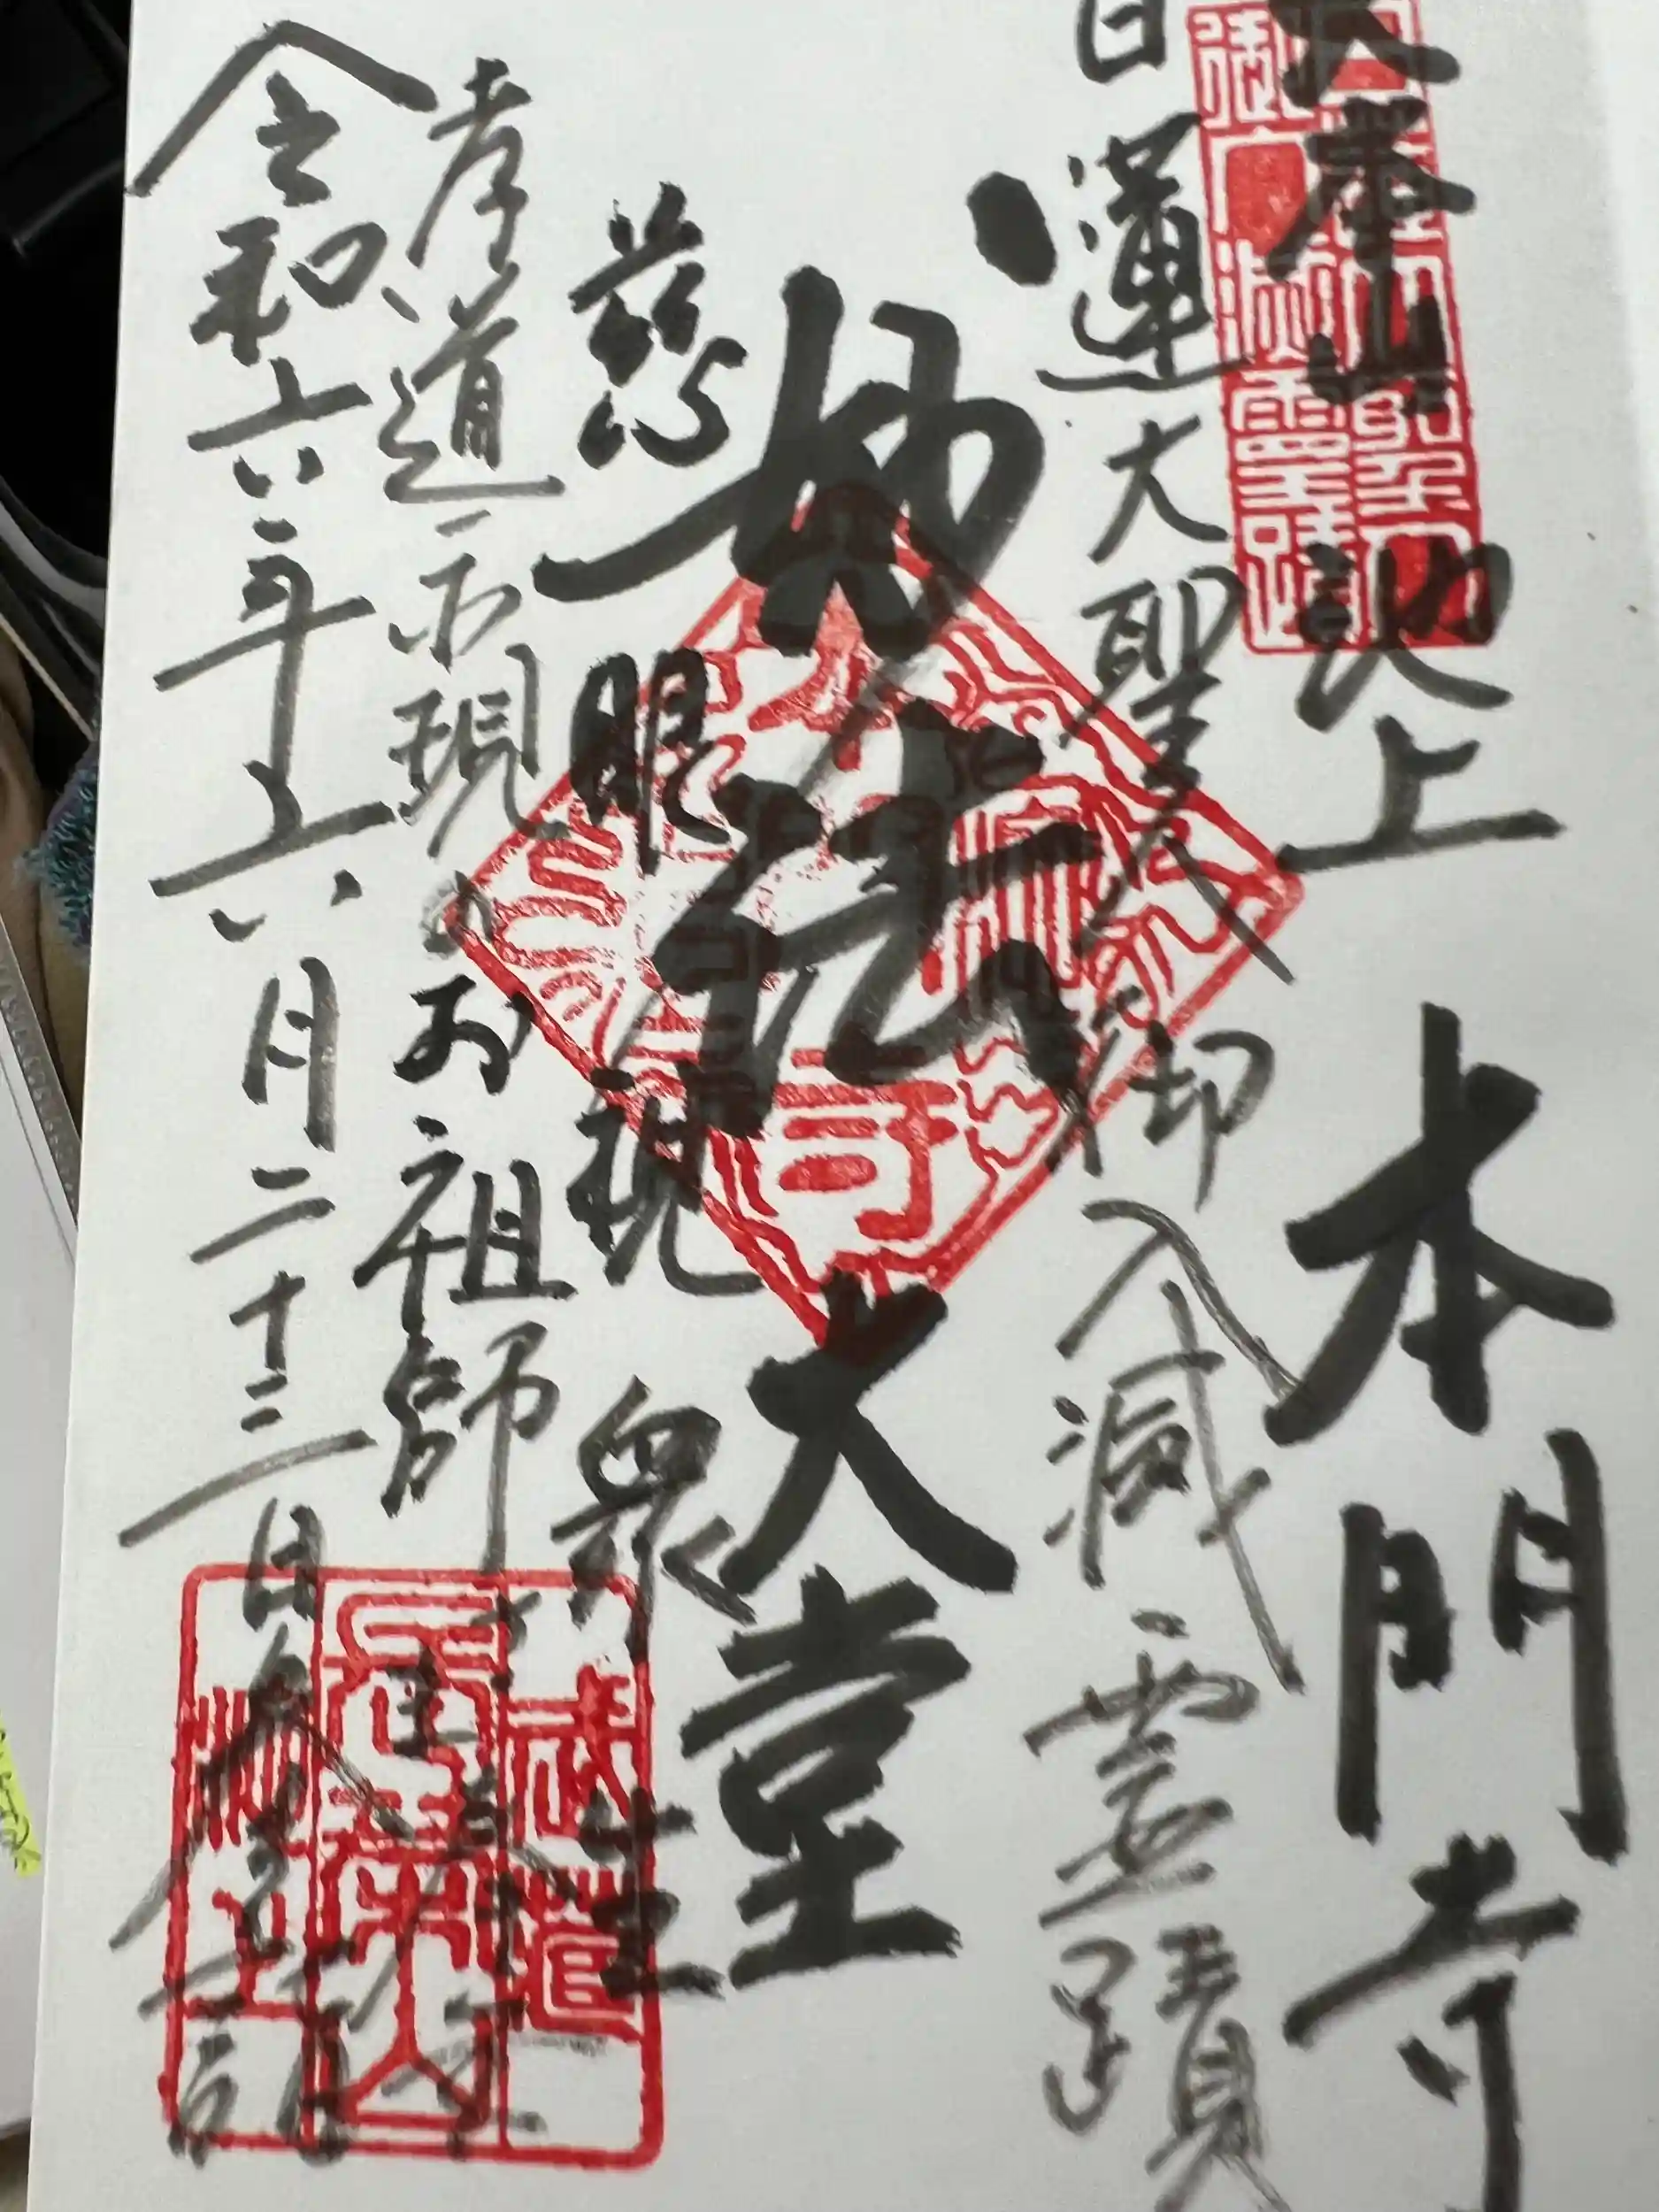 大本山 池上 本門寺
日蓮大聖人 御入滅霊蹟
妙法 大堂
慈眼視衆生
孝道示現のお祖師
令和六年六月二十三日